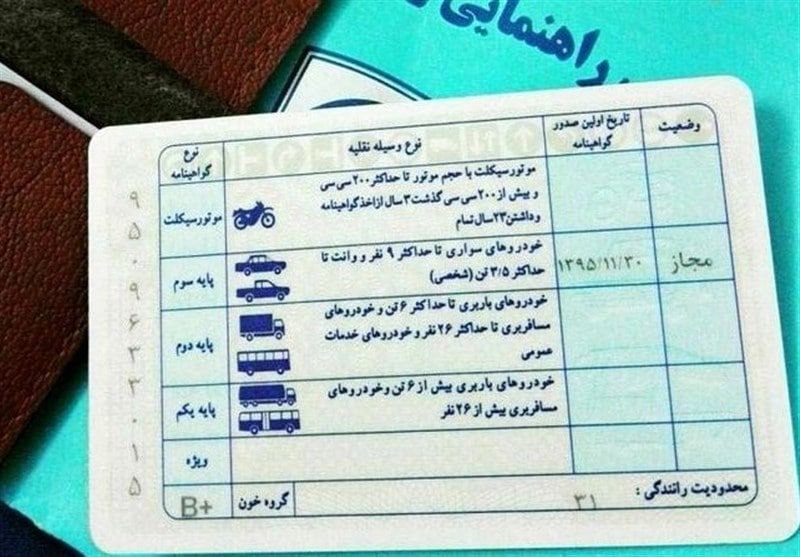 راهنمایی
وضعیت
تاریخ اولین صدور
گواهینامه
نوع وسیله نقلیه
نوع
گواهینامه
موتورسیکلت با حجم موتور تا حداکثر ۲۰۰ سی سی
و بیش از ۲۰۰ سی سی گذشت ۳ سال از اخذ گواهینامه
و داشتن ۲۳ سال تمام
موتورسیکلت
مجاز
۱۳۹۵/۱۱/۳۰
خودروهای سواری تا حداکثر ۹ نفر و وانت تا
حداکثر ۳/۵ تن (شخصی)
پایه سوم
خودروهای باربری تا حداکثر ۶ تن و خودروهای
مسافربری تا حداکثر ۲۶ نفر و خودروهای خدمات
عمومی
پایه دوم
خودروهای باربری بیش از ۶ تن وخودروهای
مسافربری بیش از ۲۶ نفر
پایه یکم
ویژه
محدودیت رانندگی : ۳۱
گروه خون
B+
۹
۵
۰
۹
۶
۳
۳
۰
۱
۵